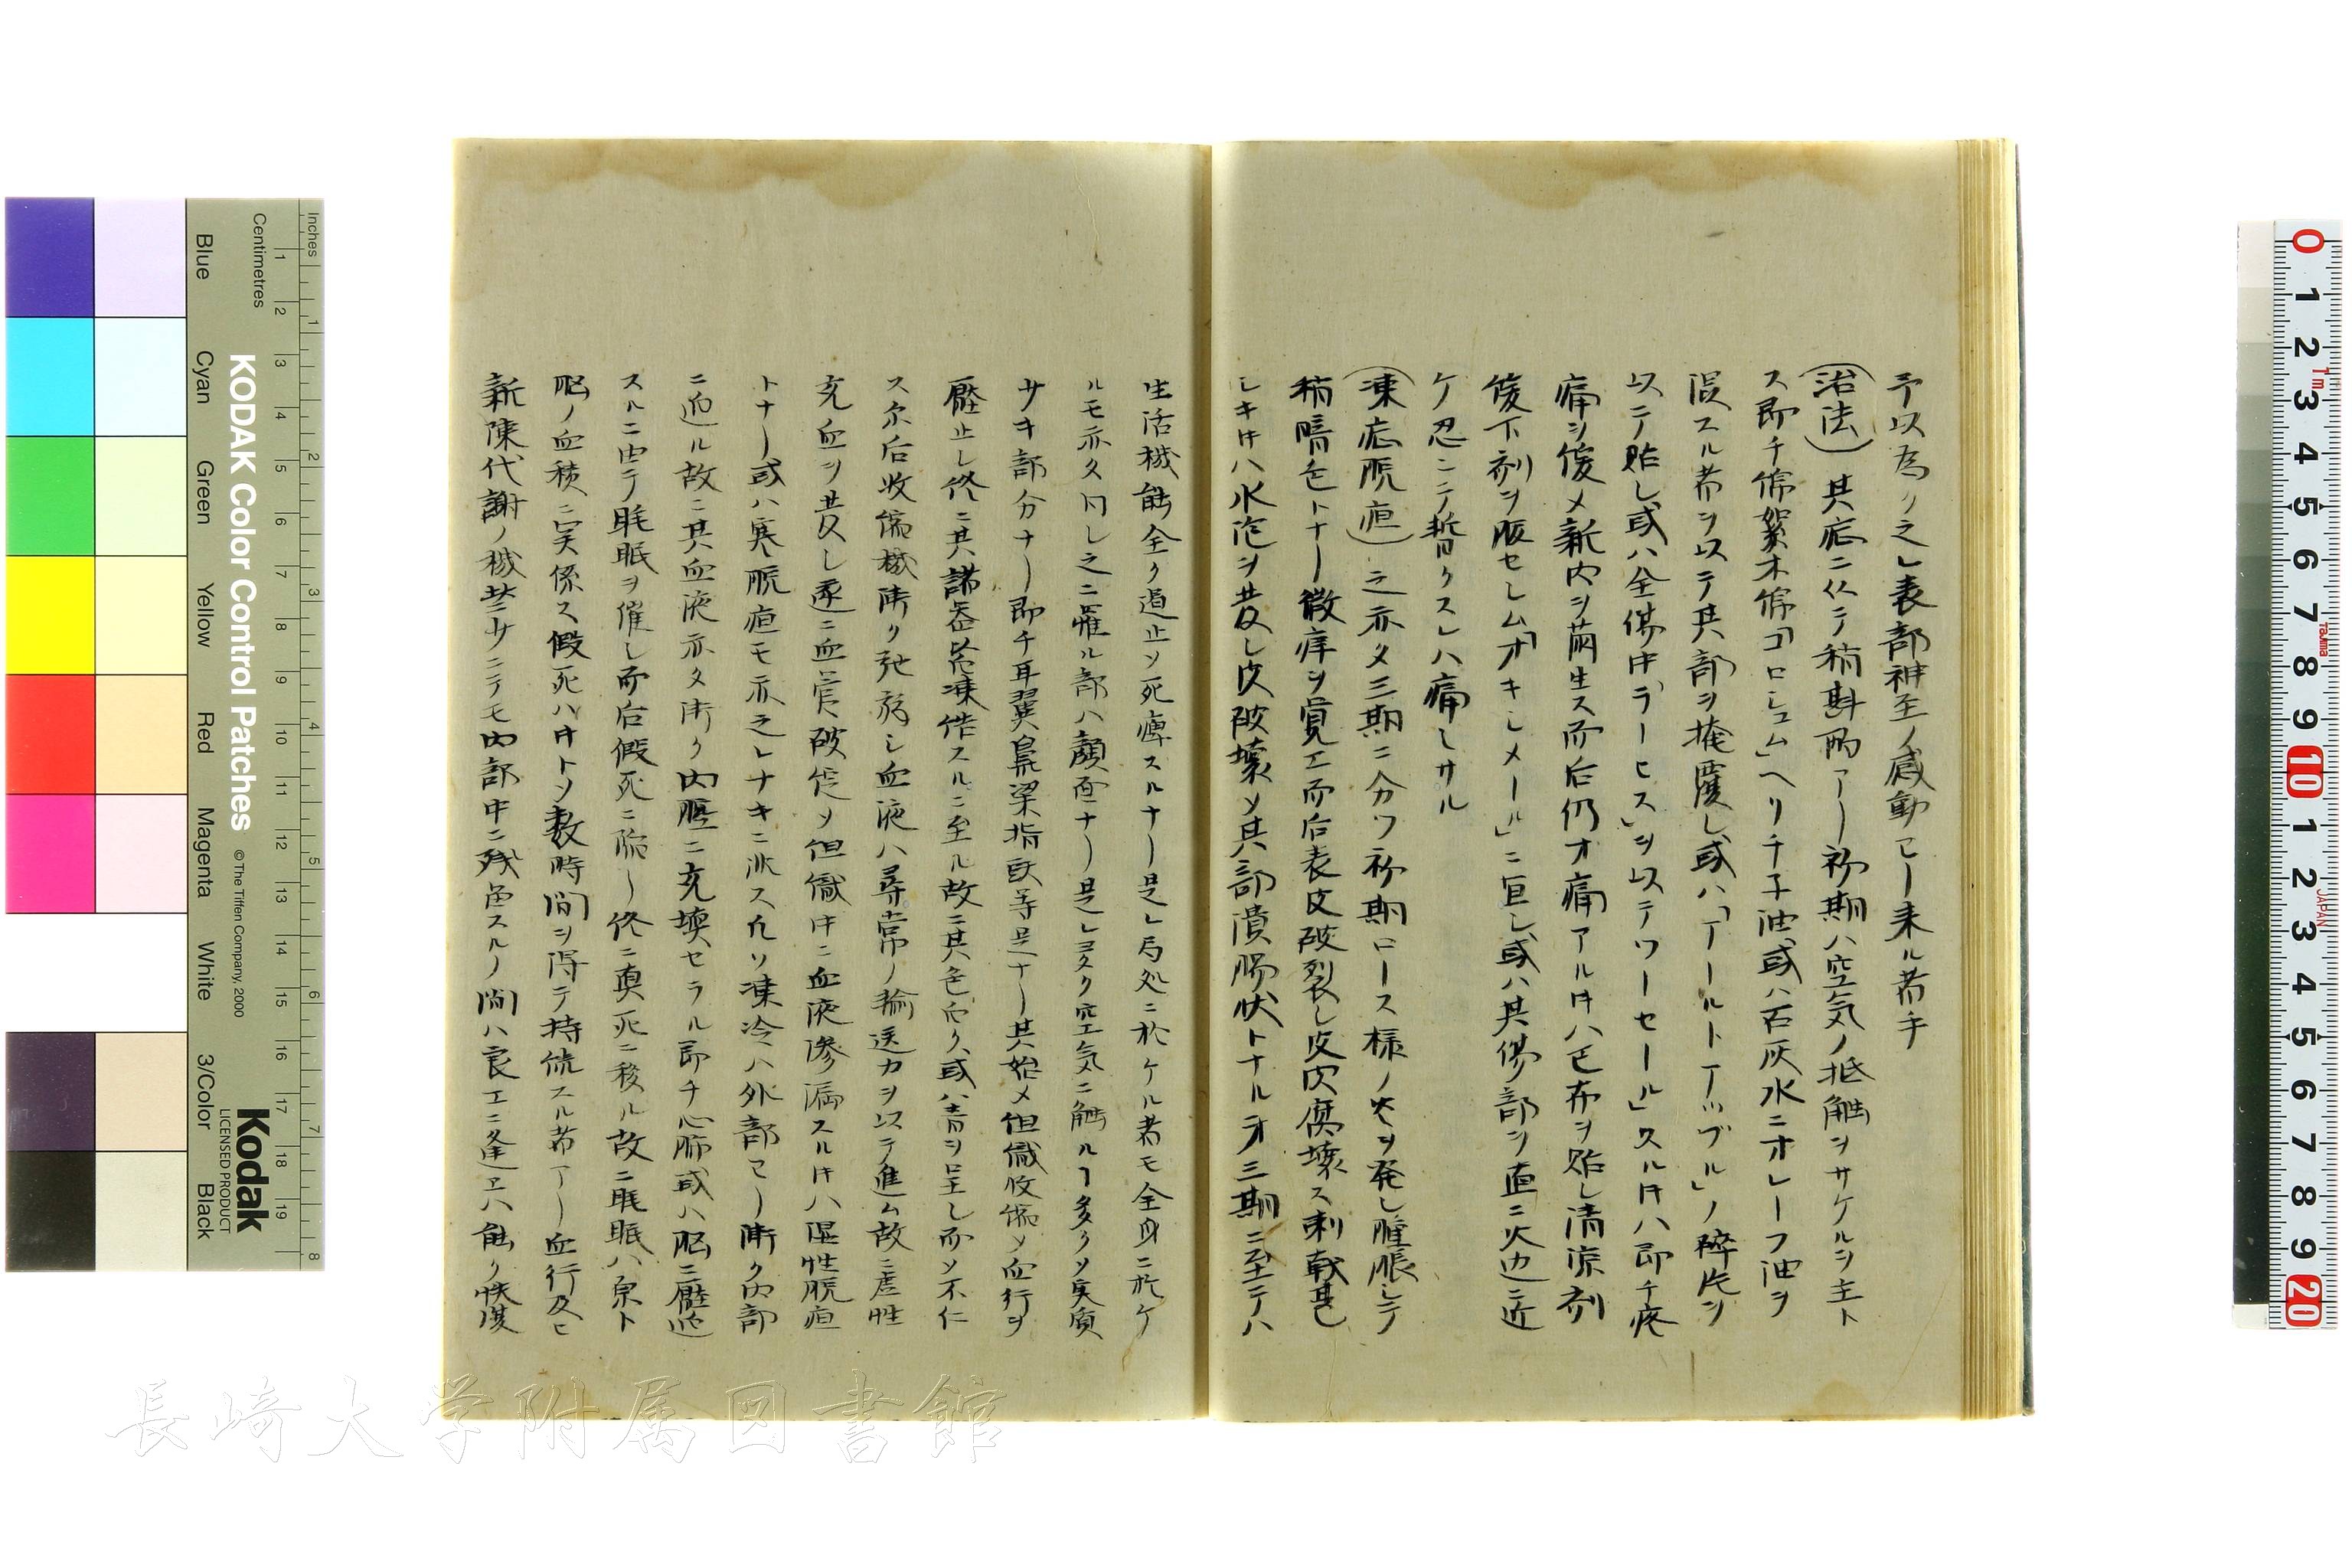 予以為ク之レ表部神至ノ感動ヨリ来ル者乎
(治法) 其症ニ仍テ稍斟酌アリ初期ハ空気ノ抵触ヲサケルヲ主ト
ス即チ綿絮木綿「コロシユム」ヘリチ子油或ハ石灰水ニオレーフ油ヲ
浸スル者ヲ以テ其部ヲ掩覆シ或ハ「アールトアップル」ノ碎片ヲ
以テ貼シ或ハ全傷中「ラーヒス」ヲ以テワーセール」スル時ハ即チ疼
痛ヲ緩メ新肉ヲ萌生ス而后仍オ痛アル時ハ巴布ヲ貼シ清涼剤
緩下剤ヲ服セシム「オキシメール」ニ宜シ或ハ其傷部ヲ直ニ火辺ニ近
ケ忍ニテ暫クスレハ痛シサル
(凍症脱疽) 之亦タ三期ニ分ツ初期ロース様ノ炎ヲ発シ腫脹シテ
稍暗色トナリ微痒ヲ覚エ而后表皮破裂シ皮肉腐壊ス刺戟甚
シキ時ハ水泡ヲ発シ皮破壊ソ其部潰瘍状トナル第三期ニ至テハ
生活機能全ク遏止ソ死痺スルナリ是レ局処ニ於ケル者モ全身ニ於ケ
ルモ亦タ同シ之ニ罹ル部ハ顔面ナリ是レヨク空気ニ触ルヿ多クソ実質
サキ部分ナリ即チ耳翼鼻梁指趺等是ナリ其始メ但僟收縮ソ血行ヲ
壓止シ終ニ其諸器営凍僵スルニ至ル故ニ其色白ク或ハ青ヲ呈シ而ソ不仁
ス尓后收縮機漸ク弛弱シ血液ハ尋常ノ輸送力ヲ以テ進ム故ニ虚性
充血ヲ発シ遂ニ血管破綻ソ但僟中ニ血液滲漏スル時ハ湿性脱疽
トナリ或ハ寒脱疽モ亦之レナキニ非ス凡ソ凍冷ハ外部ヨリ漸ク内部
ニ迫ル故ニ其血液亦タ漸ク内壓ニ充填セラル即チ心肺或ハ脳ニ壓迫
スルニ由テ眠眠ヲ催シ而后假死ニ陥リ終ニ真死ニ移ル故ニ眠眠ハ原ト
脳ノ血積ニ実係ス假死ハ時トソ数時間ヲ得テ持続スル者アリ血行及ヒ
新陳代謝ノ機禁サニテモ内部中ニ残留スルノ間ハ良工ニ逢エハ能ク恢復
KODAK Color Control Patches
© The Tiffen Company, 2000
Kodak
LICENSED PRODUCT
Inches
Centimetres
Blue
Cyan
Green
Yellow
Red
Magenta
White
3/Color
Black
長崎大学附属図書館